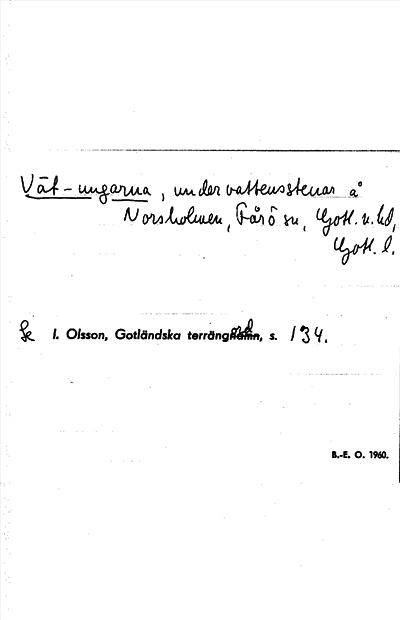 Vät-ungarna, undervattensstenar å
Norsholmen, Fårö sn, Gotl. n. hd,
Gotl. l.
Se I. Olsson, Gotländska terräng, s. 134.
B.-E. O. 1960.